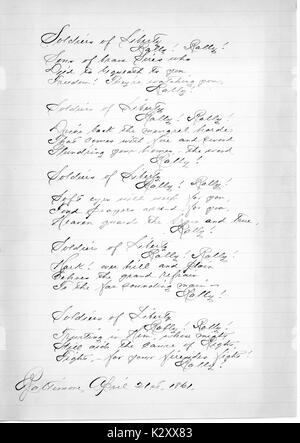 Soldiers of Liberty
Rally! Rally!
Sons of brave Sires who
Died to bequeath to you
Freedom! They're watching you,
Rally!
Soldiers of Liberty
Rally! Rally!
Drive back the mongrel horde
That comes with fire and sword
Plundring your homes, the word
Rally!
Soldiers of Liberty
Rally! Rally!
Soft eyes will weep for you,
Fond prayers ascend for you
Heaven guard the brave and true,
Rally!
Soldiers of Liberty
Rally! Rally!
Hark! hill and plain
Echoes the grand refrain
To the far sounding main -
Rally!
Soldiers of Liberty
Rally! Rally!
Trusting in Him, whose might
Still aids the cause of Right
Fight, - for your firesides fight!
Rally!
Baltimore, April 21st. 1861.
alamy
Image ID: K2XX83
www.alamy.com